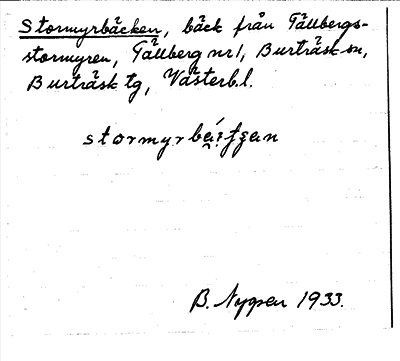 Stormyrbäcken, bäck från Tällbergs-
stormyren, Tällberg nr 1, Burträsk sn,
Burträsk tg, Västerb.l.
B. Nygren 1933.